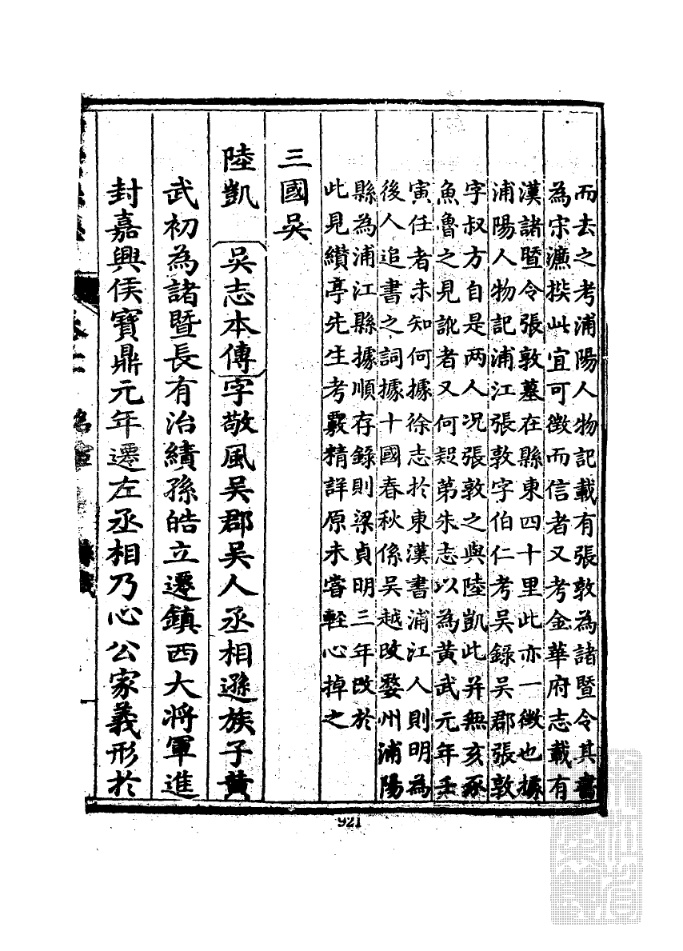 而去之考浦陽人物記載有張敦為諸暨令其書
為宋濂撰此宜可徵而信者又考金華府志載有
漢諸暨令張敦墓在縣東四十里此亦一徵也據
浦陽人物記浦江張敦字伯仁考吳錄吳郡張敦
字叔方自是两人况張敦之與陸凱此并無亥豕
魚魯之見訛者又何疑第朱志以為黃武元年壬
寅任者未知何據徐志於東漢書浦江人則明為
後人追書之詞據十國春秋係吳越改婺州浦陽
縣為浦江縣據順存錄則梁貞明三年改於
此見纘亭先生考覈精詳原未嘗輕心掉之
三國吳
陸凱 吳志本傳字敬風吳郡吳人丞相遜族子黃
武初為諸暨長有治績孫皓立遷鎮西大將軍進
封嘉興侯寶鼎元年遷左丞相乃心公家義形於
921